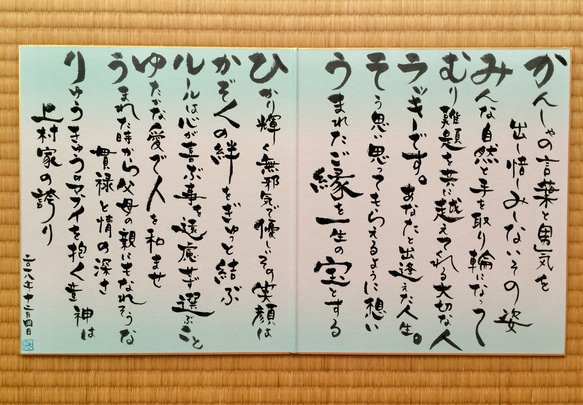 かんしゃの言葉と男気を
出し惜しみしないその姿
みんな自然と手を取り輪になって
むり難題を共に越えてくれる大切な人
ラッキーです。あなたと出逢えた人生。
そう思い思ってもらえるように想い
うまれたご縁を一生の宝とする
ひかり輝く無邪気で優しいその笑顔は
かぞくの絆をぎゅっと結ぶ
ルールは心が喜ぶ事を遠慮せず選ぶこと
ゆたかな愛で人を和ませ
うまれた時から父母の親にもなれそうな
貫禄と情の深さ
りゅうきゅうのマブイを抱く童神は
上村家の誇り
二〇一八年十二月四日